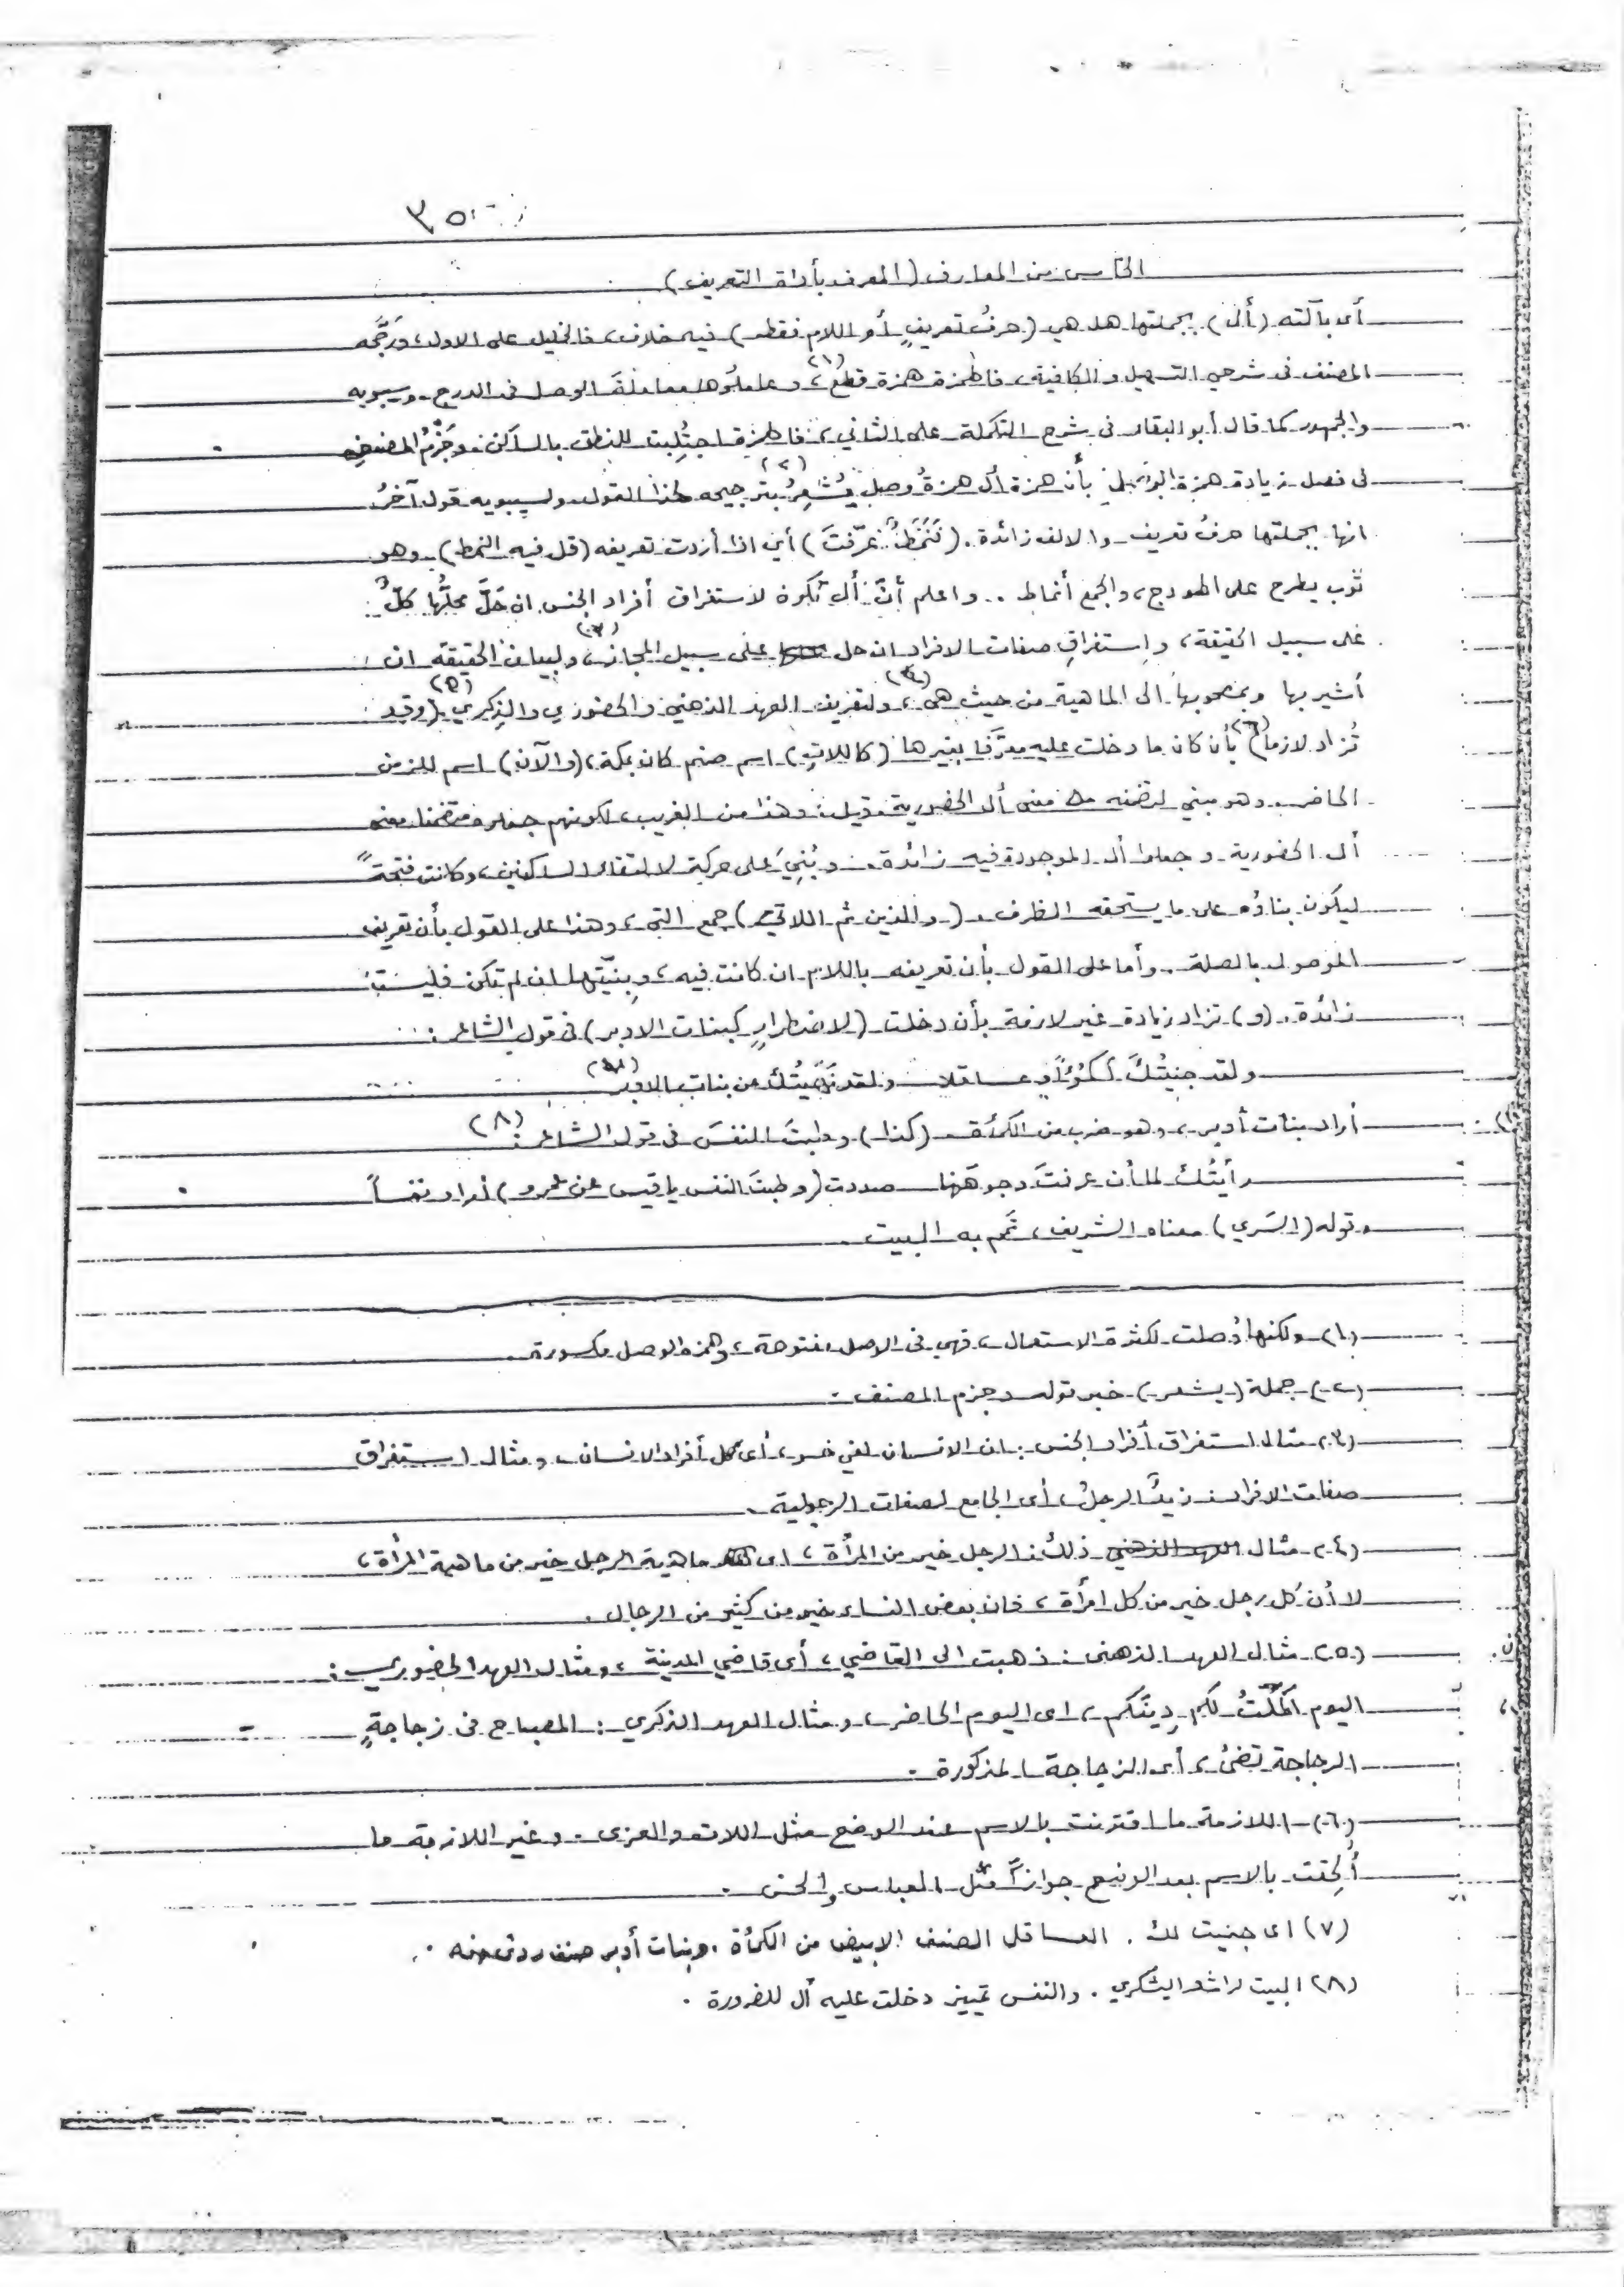 ٣٥
الخامس من المعارف (المعرف بأداة التعريف)
أى بآلته (أل) بجملتها هل هي (حرفُ تعريفٍ أو اللام فقط) فيه خلاف، فالخليل على الاول، ورَجَّحه
المصنف فى شرحي التسهيل والكافية، فالهمزة همزة قطع (١)، وعاملوها معاملةَ الوصل فى الدرج. وسيبويه
والجمهور كما قال أبو البقاء فى شرح التكملة على الثاني، فالهمزة اجتُلِبت للنطق بالساكن. وجَزْمُ المصنفِ
فى فصل زيادة همزة الوصل بأن همزة أل همزةُ وصل يُشْعِرُ (٢) بترجيحه لهذا القول. ولسيبويه قول آخرُ
انها بجملتها حرفُ تعريف والالف زائدة. (فَنَمَطٌ عرّفتَ) أي اذا أردت تعريفه (قل فيه النمط) وهو
ثوب يطرح على الهودج، والجمع أنماط .. واعلم أنّ أل تكون لاستغراق أفراد الجنس ان حَلَّ محلَّها كلٌّ
على سبيل الحقيقة، واستغراقِ صفات الافراد ان حل على سبيل المجاز (٣)، ولبيان الحقيقة ان
أشير بها وبمصحوبها الى الماهية من حيث هى (٤)، ولتعريف العهد الذهني والحضوري والذِكري (٥) (وقد
تُزاد لازما) (٦) بأن كان ما دخلت عليه معرَّفا بغيرها (كاللاتِ) اسم صنم كان بمكة، (والآن) اسم للزمن
الحاضر. وهو مبني لتضمنه معنى أل الحضورية. قيل: وهذا من الغريب، لكونهم جعلوه متضمنا معنى
أل الحضورية وجعلوا أل الموجودة فيه زائدة. وبُنِيَ على حركة لالتقاء الساكنين، وكانت فتحةً
ليكون بناؤه على ما يستحقه الظرف. (والذين ثم اللاتي) جمع التي، وهذا على القول بأن تعريف
الموصول بالصلة. وأما على القول بأن تعريفه باللام ان كانت فيه، وبِنيّتها ان لم تكن فليست
زائدة. (و) تزاد زيادة غير لازمة بأن دخلت (لاضطرارٍ كبنات الاوبر) فى قول الشاعر:
ولقد جنيتُكَ أكمُؤاً وعساقلا ولقد نَهَيتُك عن بنات الاوبر (٧)
أراد بنات أوبر، وهو ضرب من الكمأة (كذا) وطبتَ النفسَ فى قول الشاعر: (٨)
رأيتُك لما أن عرفتَ وجوهَنا صددت (وطبتَ النفس يا قيس عن عمرو) أراد نفساً
وقوله (السَري) معناه الشريف، تمم به البيت.
(١) ولكنها وُصلت لكثرة الاستعمال، فهي فى الاصل مفتوحة، وهمزة الوصل مكسورة.
(٢) جملة (يشعر) خبر قوله وجزم المصنف.
(٣) مثال استغراق أفراد الجنس: ان الانسان لفي خسر، أى كل أفراد الانسان، ومثال استغراق
صفات الافراد: زيدٌ الرجلُ، أى الجامع لصفات الرجولية.
(٤) مثال ذلك: الرجل خير من المرأة، اى ماهية الرجل خير من ماهية المرأة،
لا أن كل رجل خير من كل امرأة، فان بعض النساء خير من كثير من الرجال.
(٥) مثال العهد الذهنى: ذهبت الى القاضي، أى قاضي المدينة، ومثال العهد الحضوري:
اليوم أكملتُ لكم دِينَكم، اى اليوم الحاضر، ومثال العهد الذكري: المصباح فى زجاجةٍ
الزجاجة تضئ، أى الزجاجة المذكورة.
(٦) اللازمة ما اقترنت بالاسم عند الوضع مثل اللات والعزى. وغير اللازمة ما
أُلحِقت بالاسم بعد الوضع جوازاً مثل العباس والحسن.
(٧) اى جنيت لك. العساقل الصنف الابيض من الكمأة. وبنات أوبر صنف ردئ منه.
(٨) البيت لراشد اليشكري. والنفس تمييز دخلت عليه أل للضرورة.